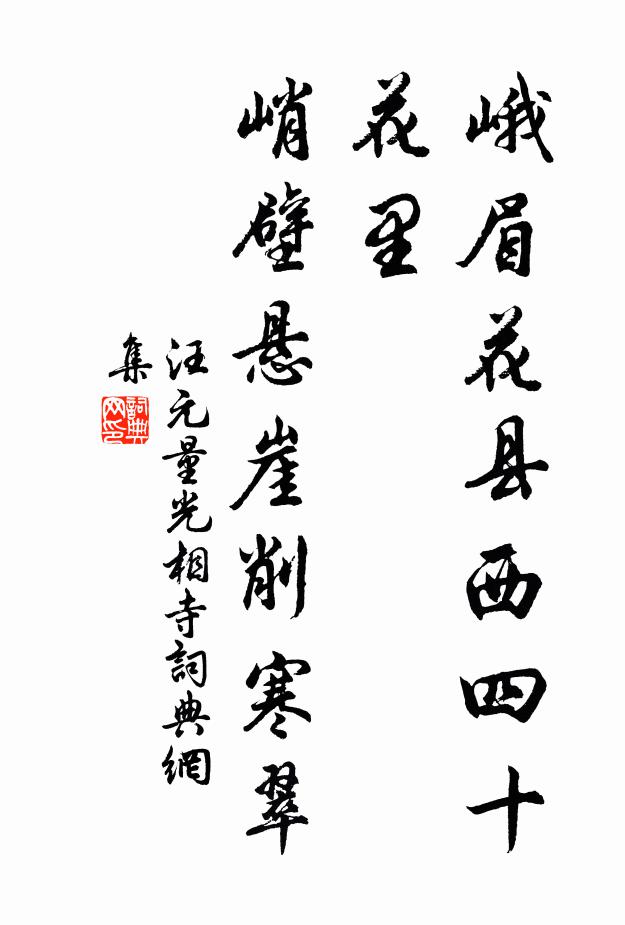 峨眉花县西四十
花里
峭壁悬崖削寒翠
汪元量光相寺詞典網
集
詞典
网印